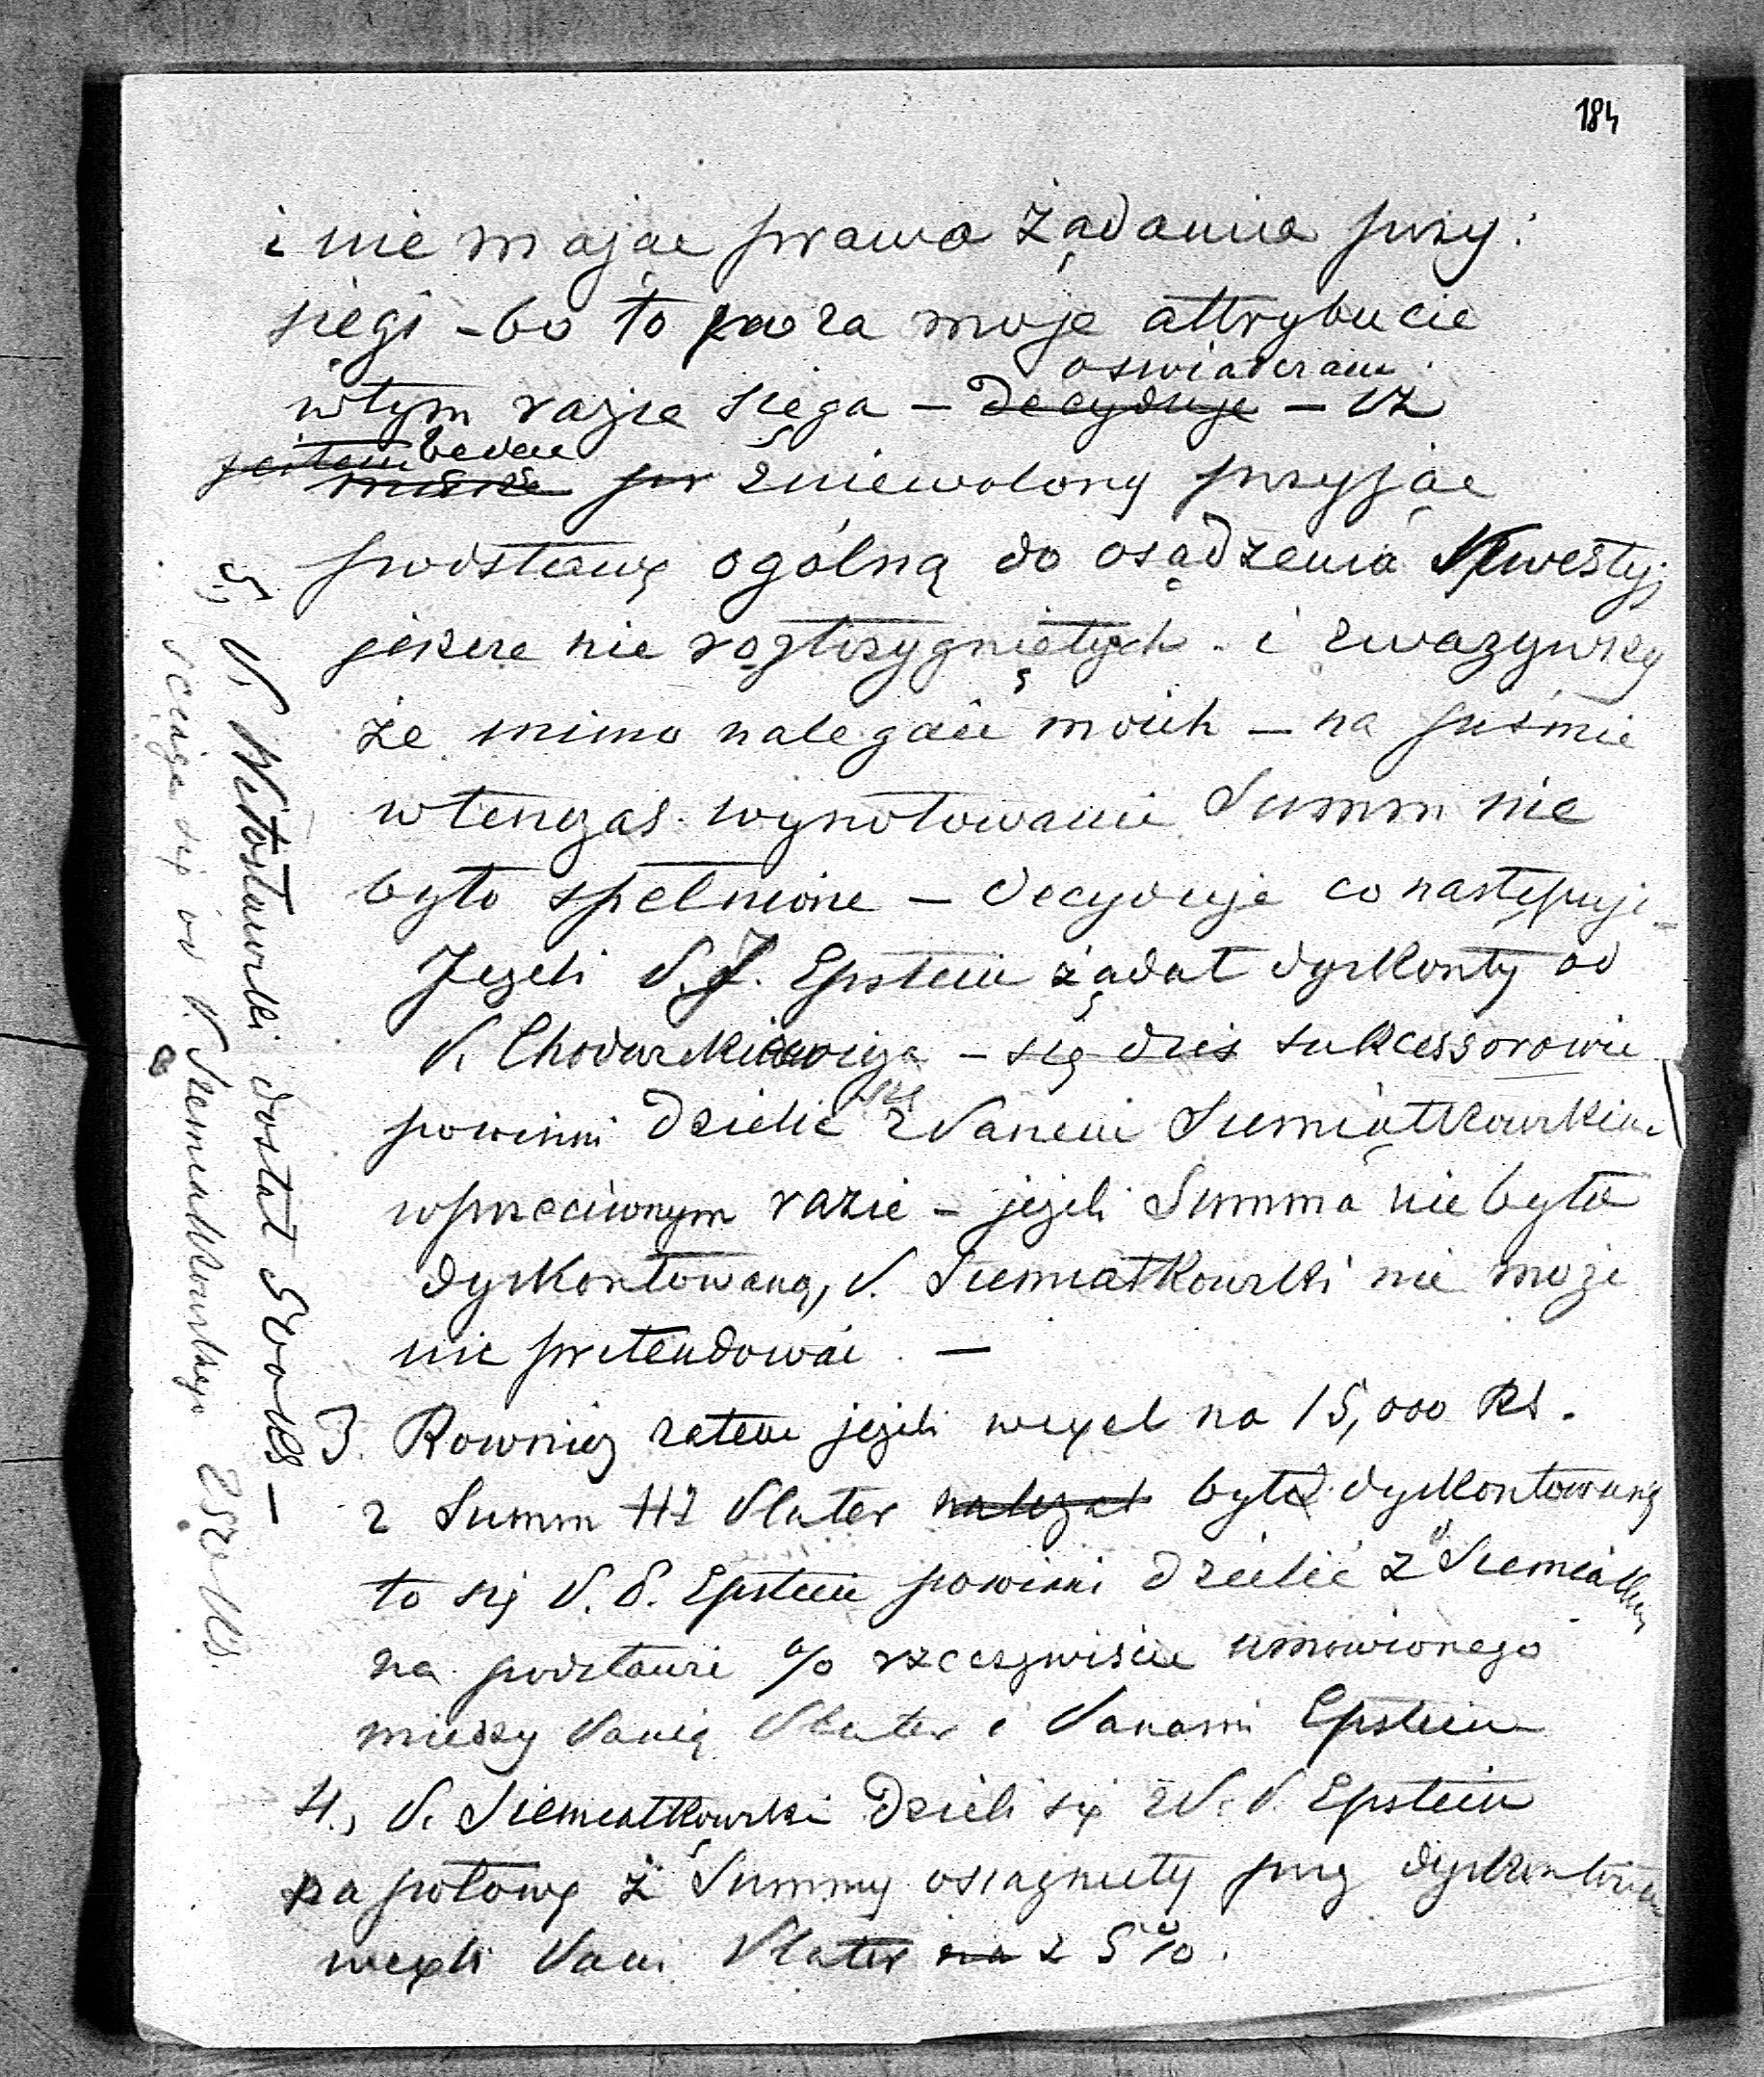 184
i nie mając prawa żądania przy:
sięgi - bo to poza moje attrybucie
w tym razie sięga - decyduje - iż
oswiadczam
jestem będąc
muszę pr zniewolony przyjąć
podstawę ogólną do osądzenia kwestyj
jeszcze nie rozstrzygniętych - i zważywszy
że mimo nalegań moich - na piśmie
wtenczas wynotowanie Summ nie
było spełnione - decyduje co następuje -
Jeżeli P. J. Epstein żądał dyskonty od
P. Chodurkiewicza - się dziś sukcessorowie
powinni dzielić się z Panem Siemiątkowskim
w przeciwnym razie - jeżeli Summa nie była
dyskontowaną, P. Siemiątkowski nie może
nic pretendować. -
3. Rownież zatem jeżeli wexel na 15,000 Rs.
z Summ Hr Plater należał była dyskontowaną
to się P. P. Epstein powinni dzielić z P. Siemiątk
na podstawie % rzeczywiście umowionego
między Panią Plater i Panami Epstein
4., P. Siemiątkowski dzieli się z P. P. Epstein
na połowę z Summy osiągnięty przy dyskontow
wexli Pani Plater na z 5%.
5, P. Witosławski dostał 500 Rs -
ściąga się od P. Siemiątkowskiego 250 Rs.